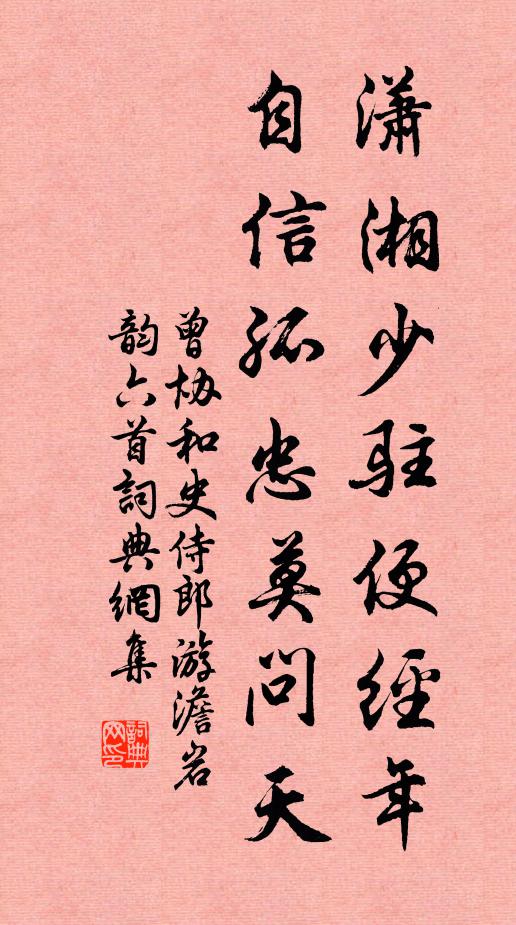 瀟湘少駐便經年
自信孤忠莫問天
曾協和史侍郎游澹岩
韵六首詞典網集
詞典
网印